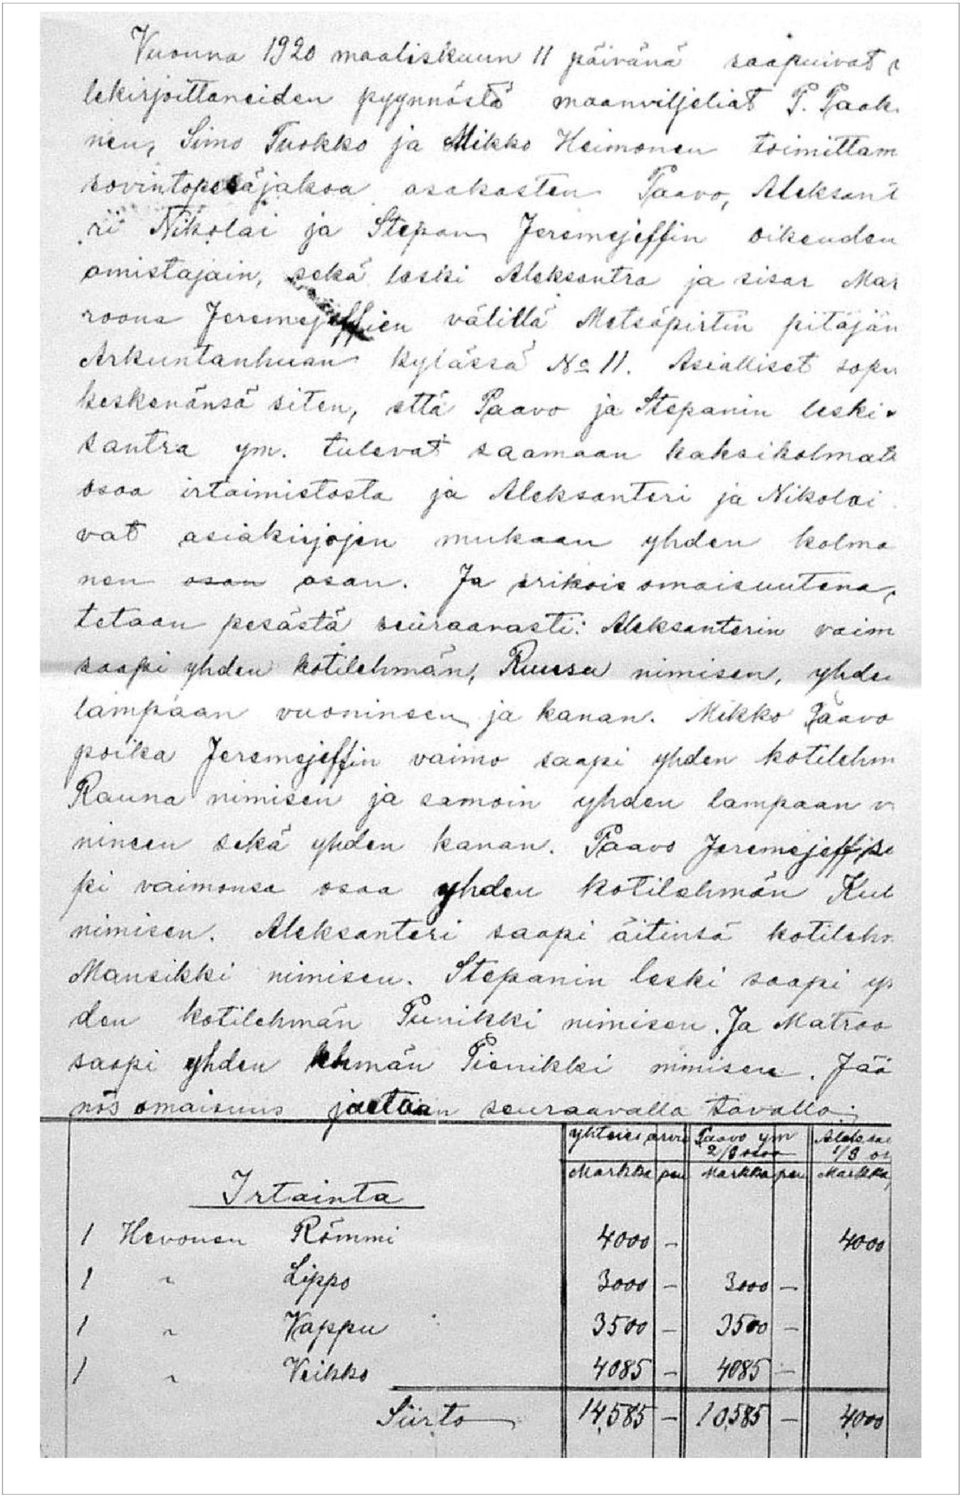 Vuonna 1920 maaliskuun 11 päivänä saapuivat
lekirjoittaneiden pyynnöstä maanviljeliät P. Paak
nen, Simo Tuokko ja Mikko Heimonen toimittam
sovintopesäjakoa asakasten Paavo, Aleksant
ri Nikolai ja Stepan Jeremejeffin oikeuden
omistajain, sekä leski Aleksantra ja sisar Mat
roona Jeremejeffien välillä Metsäpirtin pitäjän
Arkuntanhuan kylässä No 11. Asialliset sopu
keskenänsä siten, että Paavo ja Stepanin leski
santra ym. tulevat saamaan kaksikolmat
osaa irtaimistosta ja Aleksanteri ja Nikolai
vat asiakirjojen mukaan yhden kolma
nen osan osan. Ja erikois omaisuutena,
tetaan pesästä seuraavasti: Aleksanterin vaim
saapi yhden kotilehmän, Ruusu nimisen, yhde
lampaan vuoninsen ja kanan. Mikko Paavo
poika Jeremejeffin vaimo saapi yhden kotilehm
Rauna nimisen ja samoin yhden lampaan v
ninsen sekä yhden kanan. Paavo Jeremejeff
pi vaimonsa osaa yhden kotilehmän Kul
nimisen. Aleksanteri saapi äitinsä kotilehm
Mansikki nimisen. Stepanin leski saapi yh
den kotilehmän Punikki nimisen. Ja Matroo
saapi yhden lehmän Pienikki nimisen. Jää
nös omaisuus jaetaan seuraavalla tavalla:
yhteinen arvo Paavo ym 2/3 osaa Aleksa 1/3 os
Markka pen Markka pen Markka
Irtainta
1 Hevonen Römmi 4000 – 4000
1 " Lippo 3000 – 3000 –
1 " Vappu 3500 – 3500 –
1 " Veikko 4085 – 4085 –
Siirto 14,585 – 10,585 – 4,000